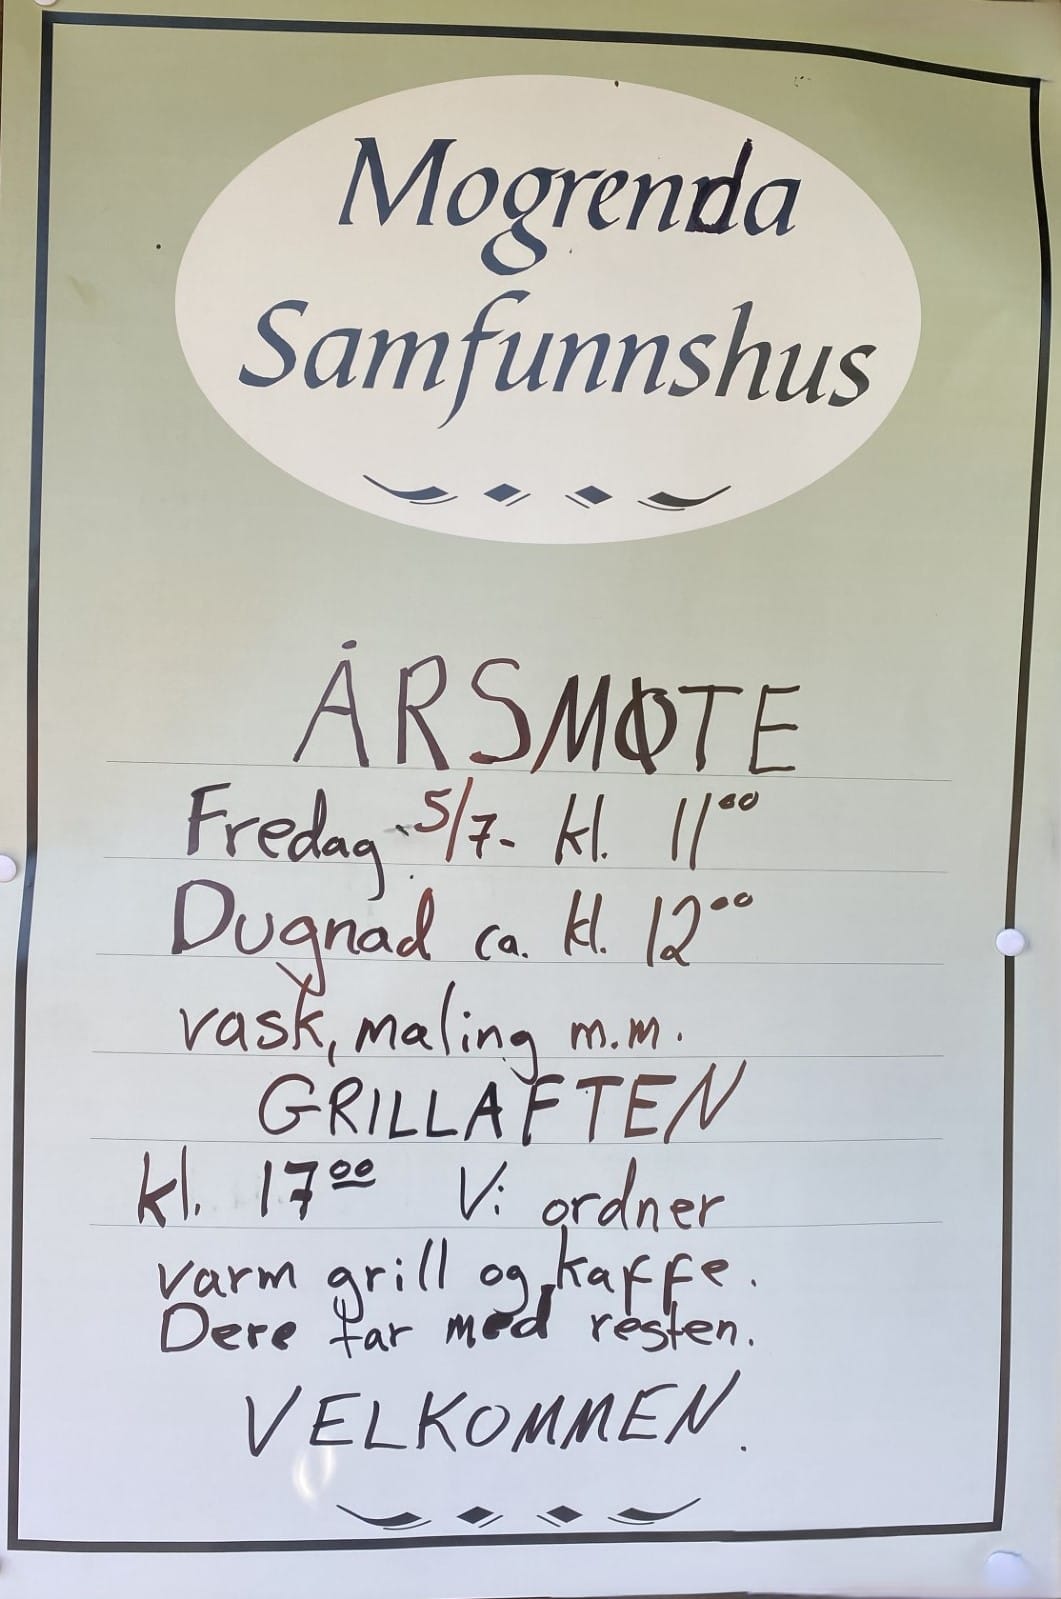 Mogrenda
Samfunnshus
ÅRSMØTE
Fredag 5/7- kl. 11⁰⁰
Dugnad ca. kl. 12⁰⁰
vask, maling m.m.
GRILLAFTEN
kl. 17⁰⁰ Vi ordner
varm grill og kaffe.
Dere tar med resten.
VELKOMMEN.